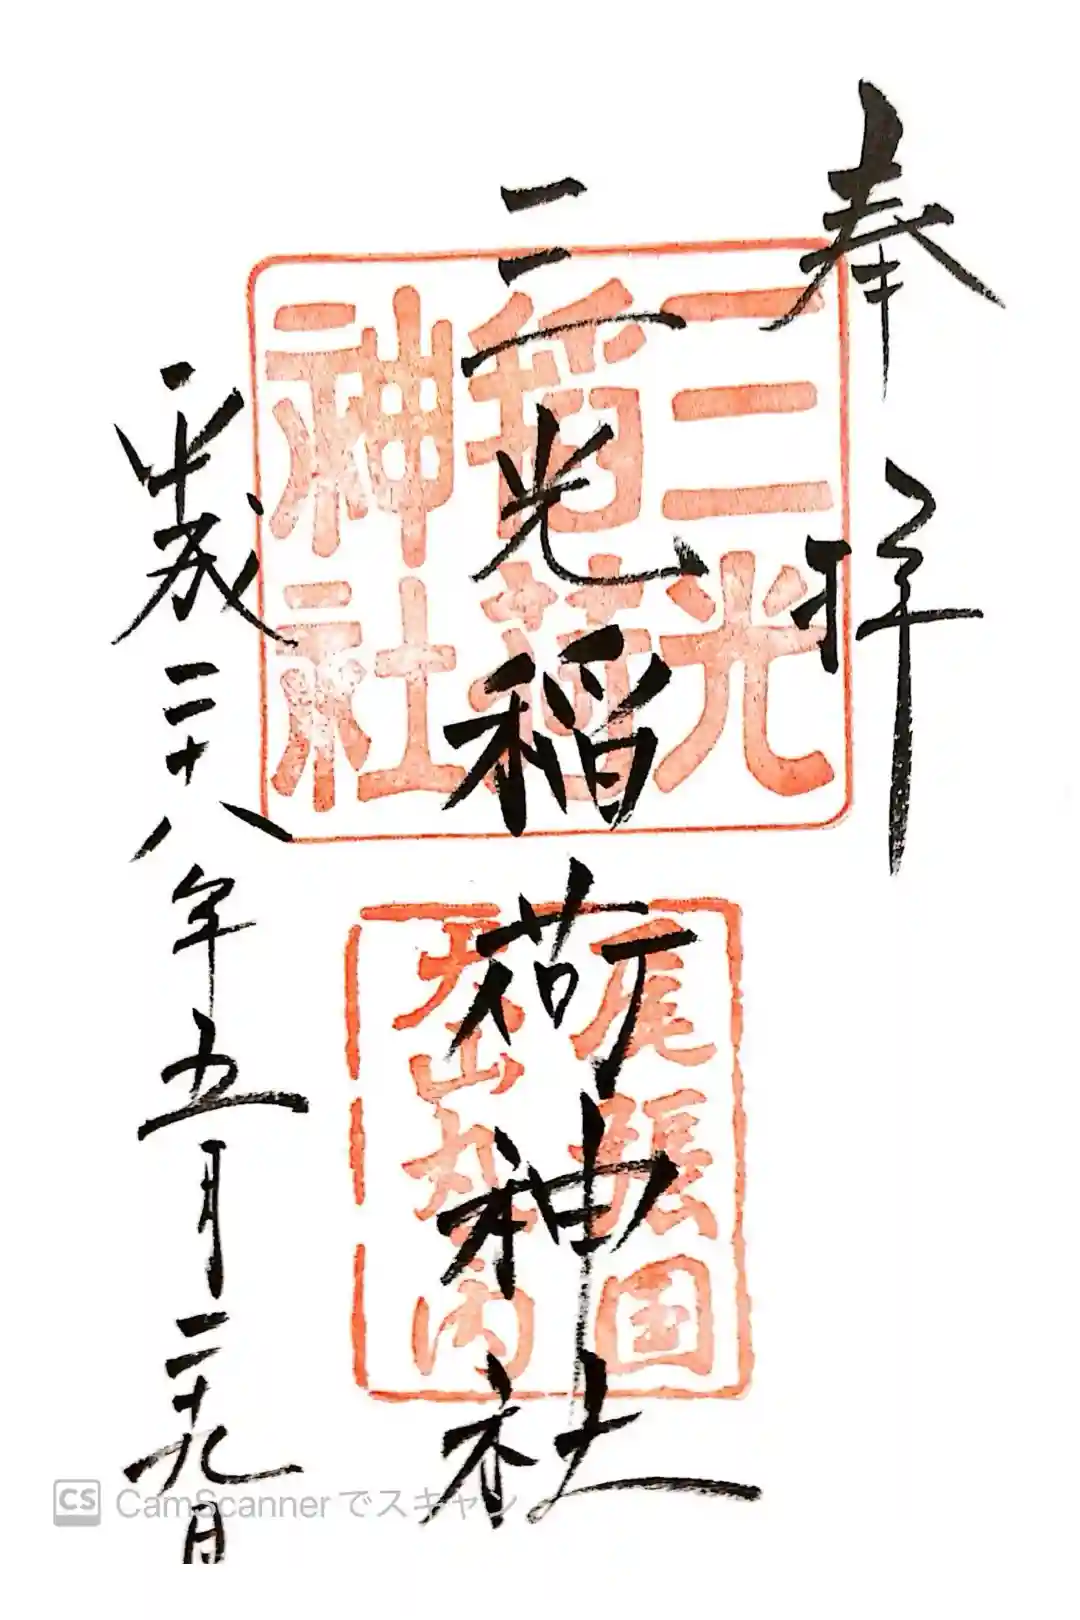 奉拝
三光稲荷神社
平成二十八年五月二十九日
三光
稲荷
神社
尾張国
犬山丸之内
CS CamScannerでスキャン